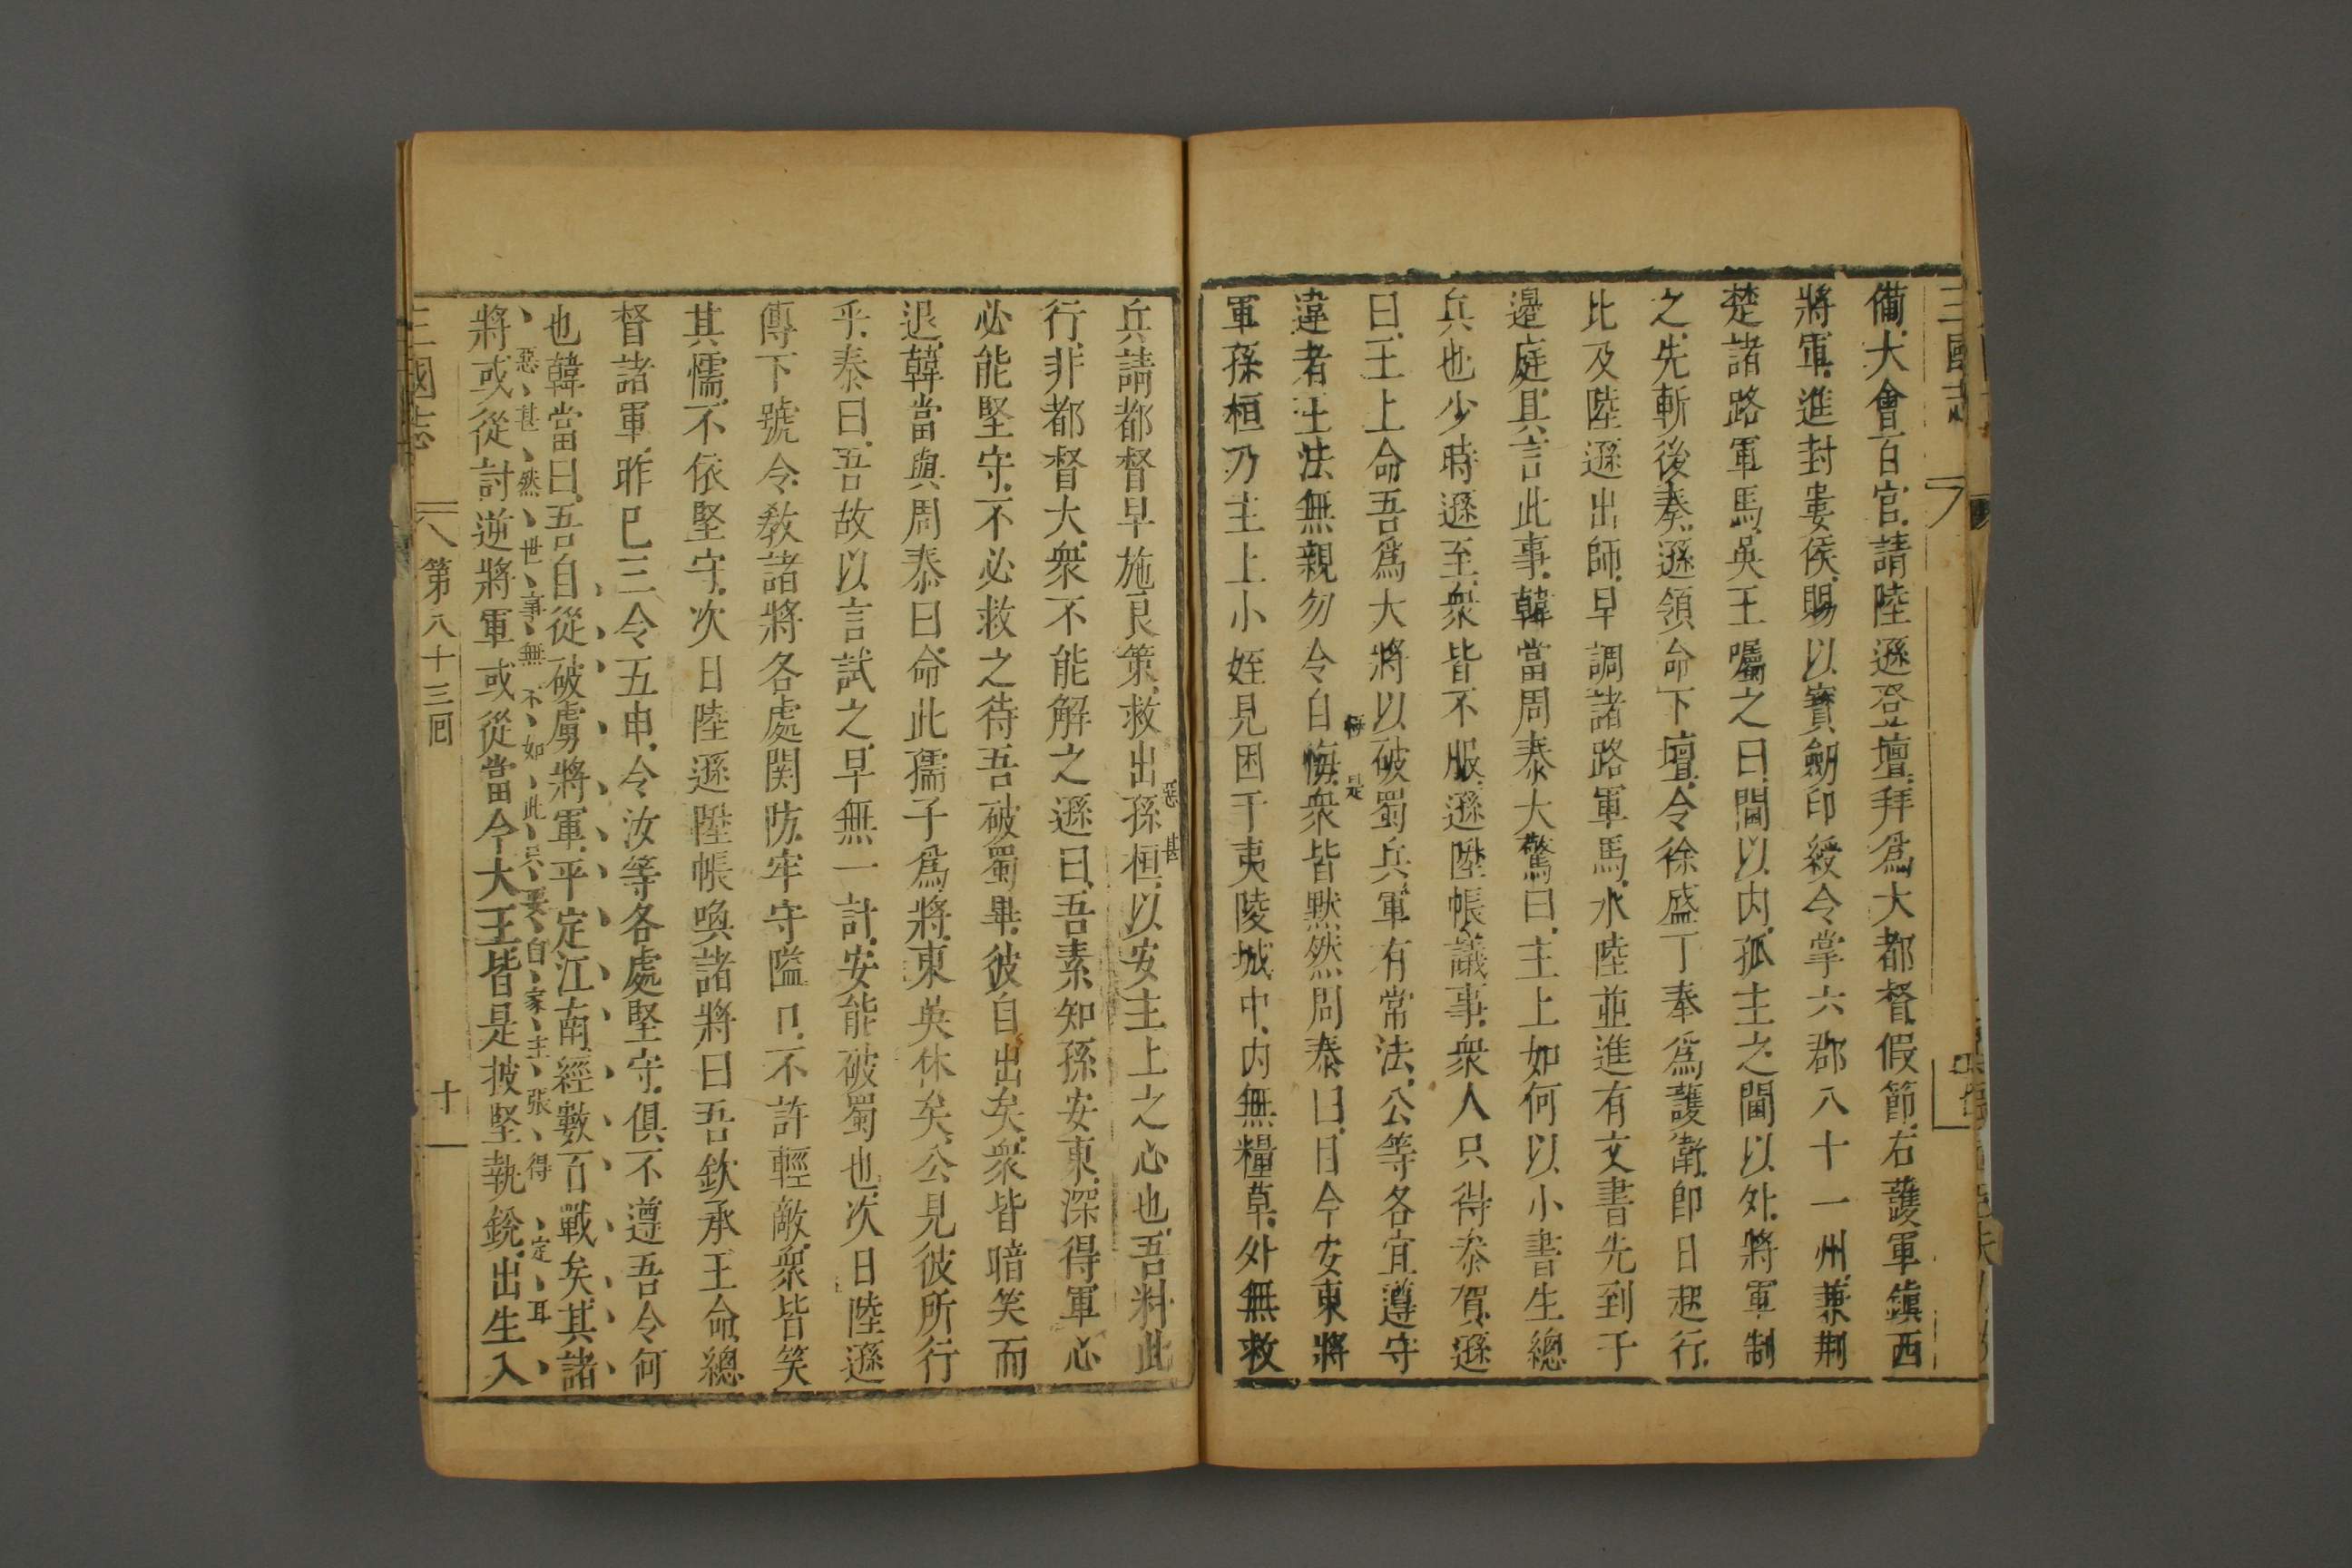 三國志
備大會百官請陸遜登壇拜爲大都督假節右護軍鎮西
將軍進封婁侯賜以寶劒印綬令掌六郡八十一州兼荆
楚諸路軍馬吳王囑之曰閫以内孤主之閫以外將軍制
之先斬後奏遜領命下壇令徐盛丁奉爲護衛即日起行
比及陸遜出師早調諸路軍馬水陸並進有文書先到于
邊庭具言此事韓當周泰大驚曰主上如何以小書生總
兵也少時遜至衆皆不服遜陞帳議事衆人只得叅賀遜
曰王上命吾爲大將以破蜀兵軍有常法公等各宜遵守
違者王法無親勿令自悔衆皆默然問泰曰目今安東將
軍孫桓乃主上小姪見困于夷陵城中内無糧草外無救
兵請都督早施良策救出孫桓以安主上之心也吾料此
惡甚
行非都督大衆不能解之遜曰吾素知孫安東深得軍心
必能堅守不必救之待吾破蜀畢彼自出矣衆皆暗笑而
退韓當與周泰曰命此孺子爲將東吳休矣公見彼所行
乎泰曰吾故以言試之早無一計安能破蜀也次日陸遜
傳下號令教諸將各處関防牢守隘口不許輕敵衆皆笑
其懦不依堅守次日陸遜陞帳喚諸將曰吾欽承王命總
督諸軍昨已三令五申令汝等各處堅守俱不遵吾令何
也韓當曰吾自從破虜將軍平定江南經數百戰矣其諸
惡甚然世事無不如此只要自家主張得定耳
將或從討逆將軍或從當今大王皆是披堅執銳出生入
三國志
第八十三囘
十